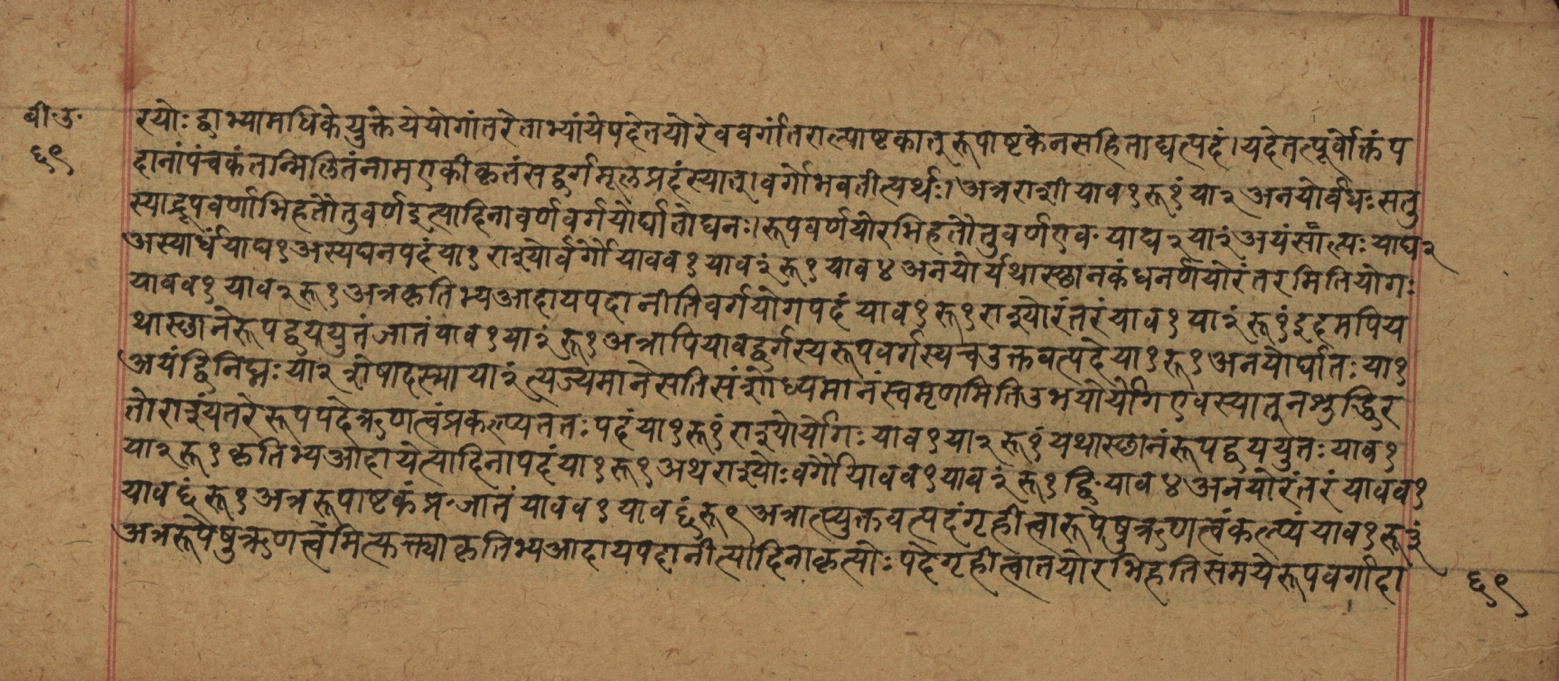 बी॰उ॰
६९
रयोः द्वाभ्यामधिकेयुक्तेयेयोगांतरेताभ्यांयेपदेतयोरेववर्गांतराल्पाष्टकात् रूपाष्टकेनसहिताद्यत्पदं।यदेतत्पूर्वोक्तंप
दानांपंचकंतन्मिलितंनामएकीकृतंसद्वर्गमूलप्रदंस्यात्।वर्गोभवतीत्यर्थः।अत्रराशीयाव१रू१ंया२अनयोर्वधःसतु
स्याद्रूपवर्णाभिहतौतुवर्णइत्यादिनावर्णवर्गयोर्घातोघनः।रूपवर्णयोरभिहतौतुवर्णएव॰याघ२या२ंअयंसाल्पःयाघ२
अस्यार्धंयाघ१अस्यघनपदंया१राश्योर्वर्गौयावव१याव२ंरू१याव४अनयोर्यथास्थानकंधनर्णयोरंतरमितियोगः
यावव१याव२रू१अत्रकृतिभ्यआदायपदानीतिवर्गयोगपदंयाव१रू१राश्योरंतरंयाव१या२ंरू१ंइदमपिय
थास्थानेरूपद्वययुतंजातंयाव१या२ंरू१अत्रापियावद्वर्गस्यरूपवर्गस्यचउक्तवत्पदेया१रू१अनयोर्घातःया१
अयंद्विनिघ्नःया२शेषादस्माया२ंत्यज्यमानेसतिसंशोध्यमानंस्वमृणमितिउभयोर्योगएवस्यात्नशुद्धिर
तोराश्यंयतरेरूपपदेऋणत्वंप्रकल्प्यततःपदंया१रू१ंराश्योर्योगःयाव१या२रू१ंयथास्थानंरूपद्वययुतःयाव१
या२रू१कृतिभ्यआदायेत्यादिनापदंया१रू१अथराश्योःवर्गौयावव१याव२ंरू१द्विःयाव४अनयोरंतरंयावव१
याव६ंरू१अत्ररूपाष्टकंप्र॰जातंयावव१याव६ंरू९अत्रात्स्युक्तवत्पदंगृहीत्वारूपेषुऋणत्वंकल्प्यंयाव१रू३ं
अत्ररूपेषुऋणत्वंमित्कत्त्याकृतिभ्यआदायपदानीत्यादिनाकृत्योःपदेगृहीत्वातयोरभिहतिसमयेरूपवर्गादा
६९